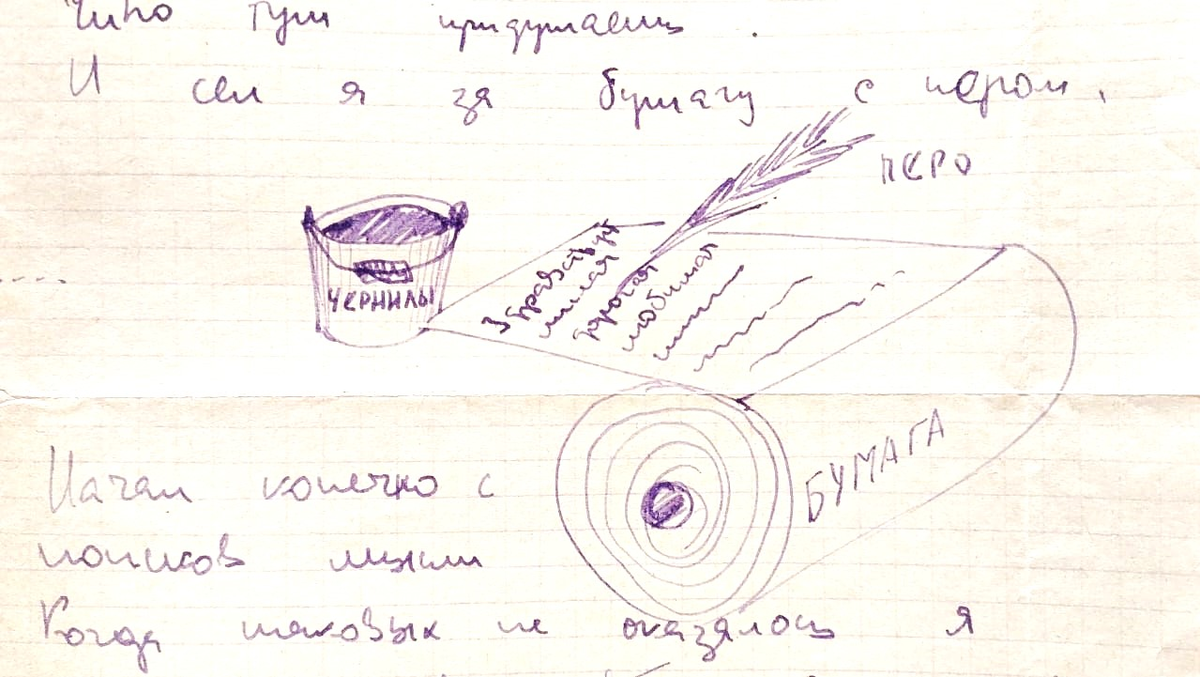 Чиво тут придумаешь.
И сел я за бумагу с пером.
ПЕРО
ЧЕРНИЛЫ
Здравствуй
милая
дорогая
любимая
БУМАГА
Начал конечно с
поисков мысли
Когда таковых не оказалось я